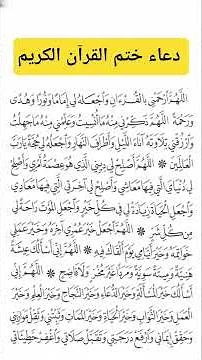 دعاء ختم القرآن الكريم
اللَّهُمَّ ارْحَمْنِي بِالْقُرْءَانِ وَاجْعَلْهُ لِي إِمَامًا وَنُورًا وَهُدًى
وَرَحْمَةً اللَّهُمَّ ذَكِّرْنِي مِنْهُ مَا نُسِّيتُ وَعَلِّمْنِي مِنْهُ مَا جَهِلْتُ
وَارْزُقْنِي تِلَاوَتَهُ آنَاءَ اللَّيْلِ وَأَطْرَافَ النَّهَارِ وَاجْعَلْهُ لِي حُجَّةً يَارَبَّ
الْعَالَمِينَ * اللَّهُمَّ أَصْلِحْ لِي دِينِي الَّذِي هُوَ عِصْمَةُ أَمْرِي وَأَصْلِحْ
لِي دُنْيَايَ الَّتِي فِيهَا مَعَاشِي وَأَصْلِحْ لِي آخِرَتِي الَّتِي فِيهَا مَعَادِي
وَاجْعَلِ الْحَيَاةَ زِيَادَةً لِي فِي كُلِّ خَيْرٍ وَاجْعَلِ الْمَوْتَ رَاحَةً لِي
مِنْ كُلِّ شَرٍّ * اللَّهُمَّ اجْعَلْ خَيْرَ عُمْرِي آخِرَهُ وَخَيْرَ عَمَلِي
خَوَاتِمَهُ وَخَيْرَ أَيَّامِي يَوْمَ أَلْقَاكَ فِيهِ * اللَّهُمَّ إِنِّي أَسْأَلُكَ عِيشَةً
هَنِيَّةً وَمِيتَةً سَوِيَّةً وَمَرَدًّا غَيْرَ مُخْزٍ وَلَا فَاضِحٍ * اللَّهُمَّ إِنِّي
أَسْأَلُكَ خَيْرَ الْمَسْأَلَةِ وَخَيْرَ الدُّعَاءِ وَخَيْرَ النَّجَاحِ وَخَيْرَ الْعِلْمِ وَخَيْرَ
الْعَمَلِ وَخَيْرَ الثَّوَابِ وَخَيْرَ الْحَيَاةِ وَخَيْرَ الْمَمَاتِ وَثَبِّتْنِي وَثَقِّلْ مَوَازِينِي
وَحَقِّقْ إِيمَانِي وَارْفَعْ دَرَجَتِي وَتَقَبَّلْ صَلَاتِي وَاغْفِرْ خَطِيئَاتِي